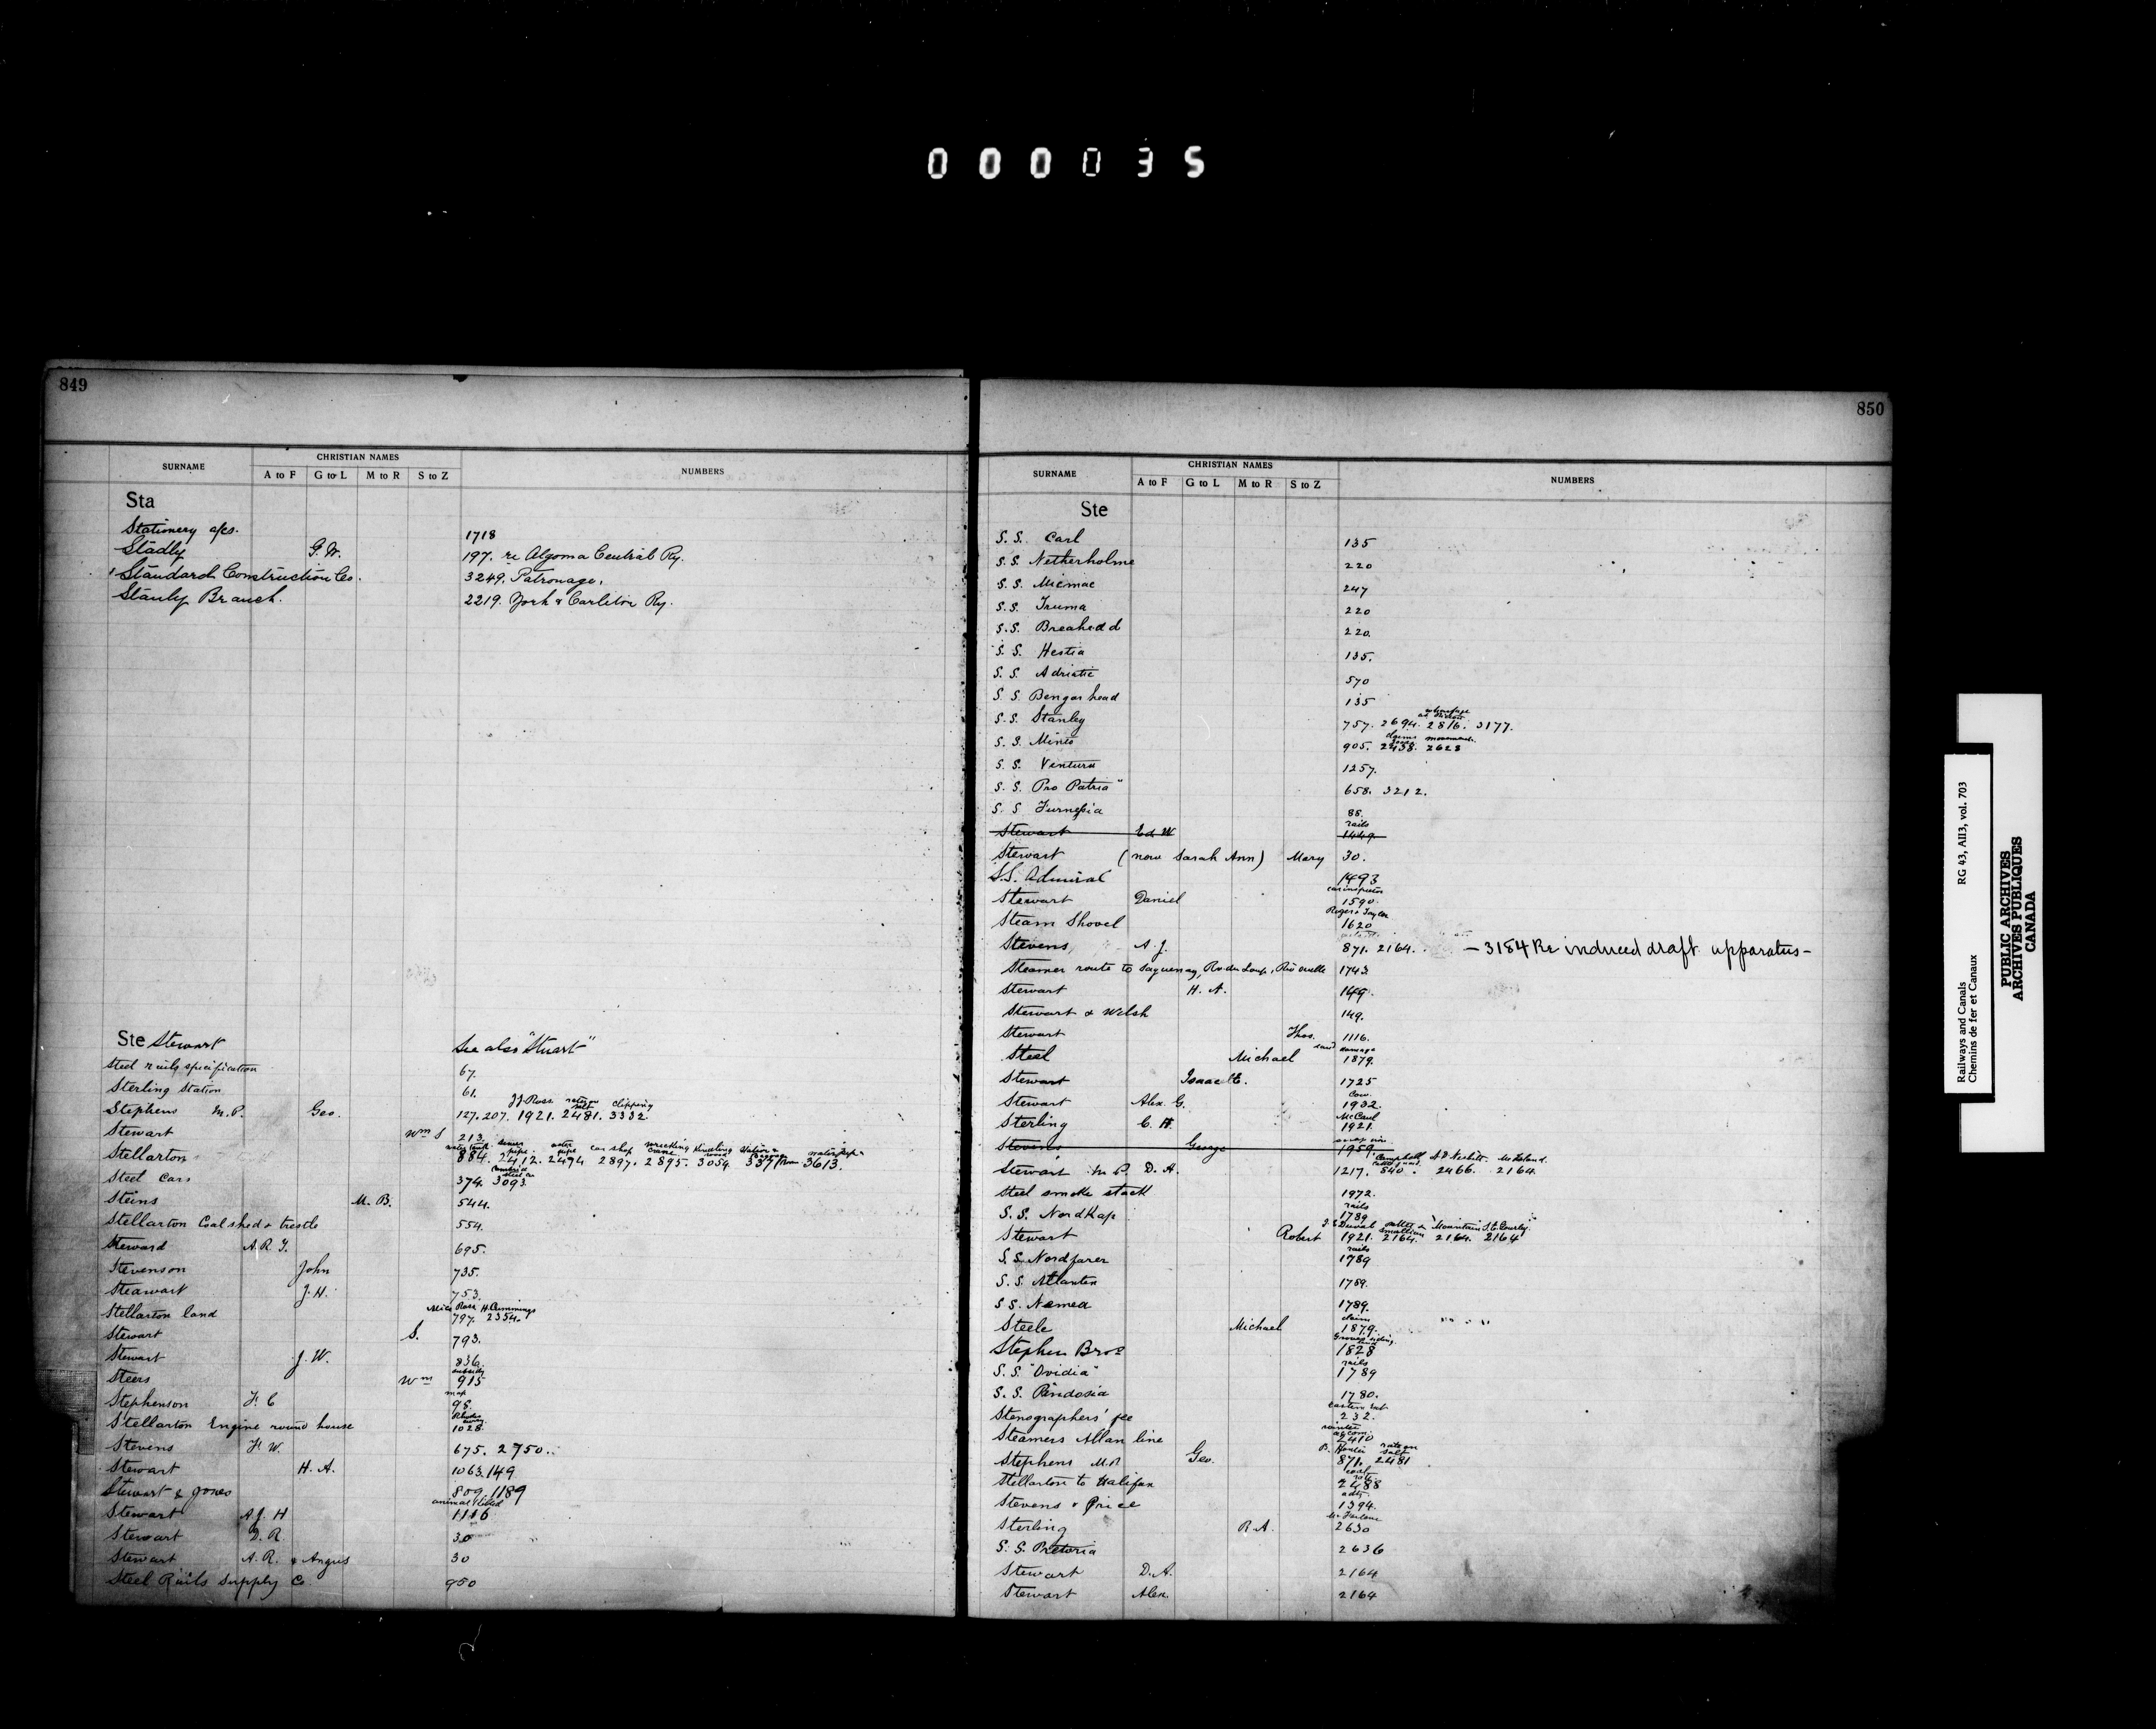 000035
849
SURNAME CHRISTIAN NAMES NUMBERS
A to F G to L M to R S to Z
Sta
Stationery a/cs. 1718
Stadly G. W. 197. re Algoma Central Ry.
Standard Construction Co. 3249. Patronage.
Stanly Branch. 2219. York & Carleton Ry.
Ste Stewart See also "Stuart"
Steel rails specification 67.
Sterling Station 61.
JJ Ross rate on salt clipping
Stephens M.P. Geo. 127. 207. 1921. 2481. 3332
Stewart Wm S 213.
water tank sewer pipe. water pipe car shop wrecking crane Kindling wood Station &
Stellarton 884. 2412. 2494 2897. 2895. 3054. 3371 3613.
Steel Cars 374. 3093.
Steins M. B. 544.
Stellarton Coal shed & trestle 554.
Steward A. R. Y. 695.
Stevenson John 735.
Steawart J. H. 753.
Ross H Cummings
Stellarton land 797. 2354.
Stewart S. 793.
Stewart J. W. 836.
subsidy
Steers Wm 915
map
Stephenson F. C 98.
Rhodes Curry
Stellarton Engine round house 1028.
Stevens F. W. 675. 2750.
Stewart H. A. 1063. 149
Stewart & Jones 809. 1189
animal killed
Stewart A. J. H 1116
Stewart D. R. 30
Stewart A. R. & Angus 30
Steel Rails Supply Co. 950
850
SURNAME CHRISTIAN NAMES NUMBERS
A to F G to L M to R S to Z
Ste
S. S. Carl 135
S. S. Netherholme 220
S. S. Micmac 247
S. S. Truma 220
S. S. Breahead 220.
S. S. Hestia 135.
S. S. Adriatic 570
S. S. Bengar head 135
S. S. Stanley 757. 2694. 2816. 3177.
S. S. Minto 905. 2438. 2623
S. S. Ventura 1257.
S. S. Pro Patria" 658. 3212.
S. S Furnesia 88.
rails
Stewart Ed W 1449.
Stewart (now Sarah Ann) Mary 30.
S.S. Admiral 1493
car inspector
Stewart Daniel 1590.
Rogers Taylor
Steam Shovel 1620
Stevens, A. J. 871. 2164. — 3184 Re induced draft apparatus —
Steamer route to Saguenay, Riv du Loup, Riv ouelle 1743
Stewart H. A. 149.
Stewart & Welsh 149.
Stewart Thos. 1116.
land damage
Steel Michael 1879.
Stewart Isaac E. 1725
Cow.
Stewart Alex. G. 1932.
McCaul
Sterling C. H. 1921.
Stevens George 1959.
Campbell A D Nesbitt. McLeland.
Stewart M. P. D. A. 1217. 840. 2466. 2164.
Steel smoke stack 1972.
rails
S. S. NordKap 1789
Stewart Robert 1921. 2164. 2164. 2164
rails
S. S. Nordfarer 1789
S. S. Atlanten 1789.
S S. Nemea 1789.
claim
Steele Michael 1879.
siding
Stephen Bros 1828
rails
S. S. "Ovidia" 1789
S. S. Pindosia 1780.
Eastern Ext
Stenographers' fee 232.
winter accom.
Steamers Allan line 2410
rate on salt
Stephens M. P. Geo. 871. 2481
coal rate
Stellarton to Halifax 2488
adty.
Stevens & Price 1394.
McFarlane
Sterling R. A. 2630
S. S. Pretoria 2636
Stewart D. A. 2164
Stewart Alex. 2164
Railways and Canals RG 43, AII3, vol. 703
Chemins de fer et Canaux
PUBLIC ARCHIVES
ARCHIVES PUBLIQUES
CANADA